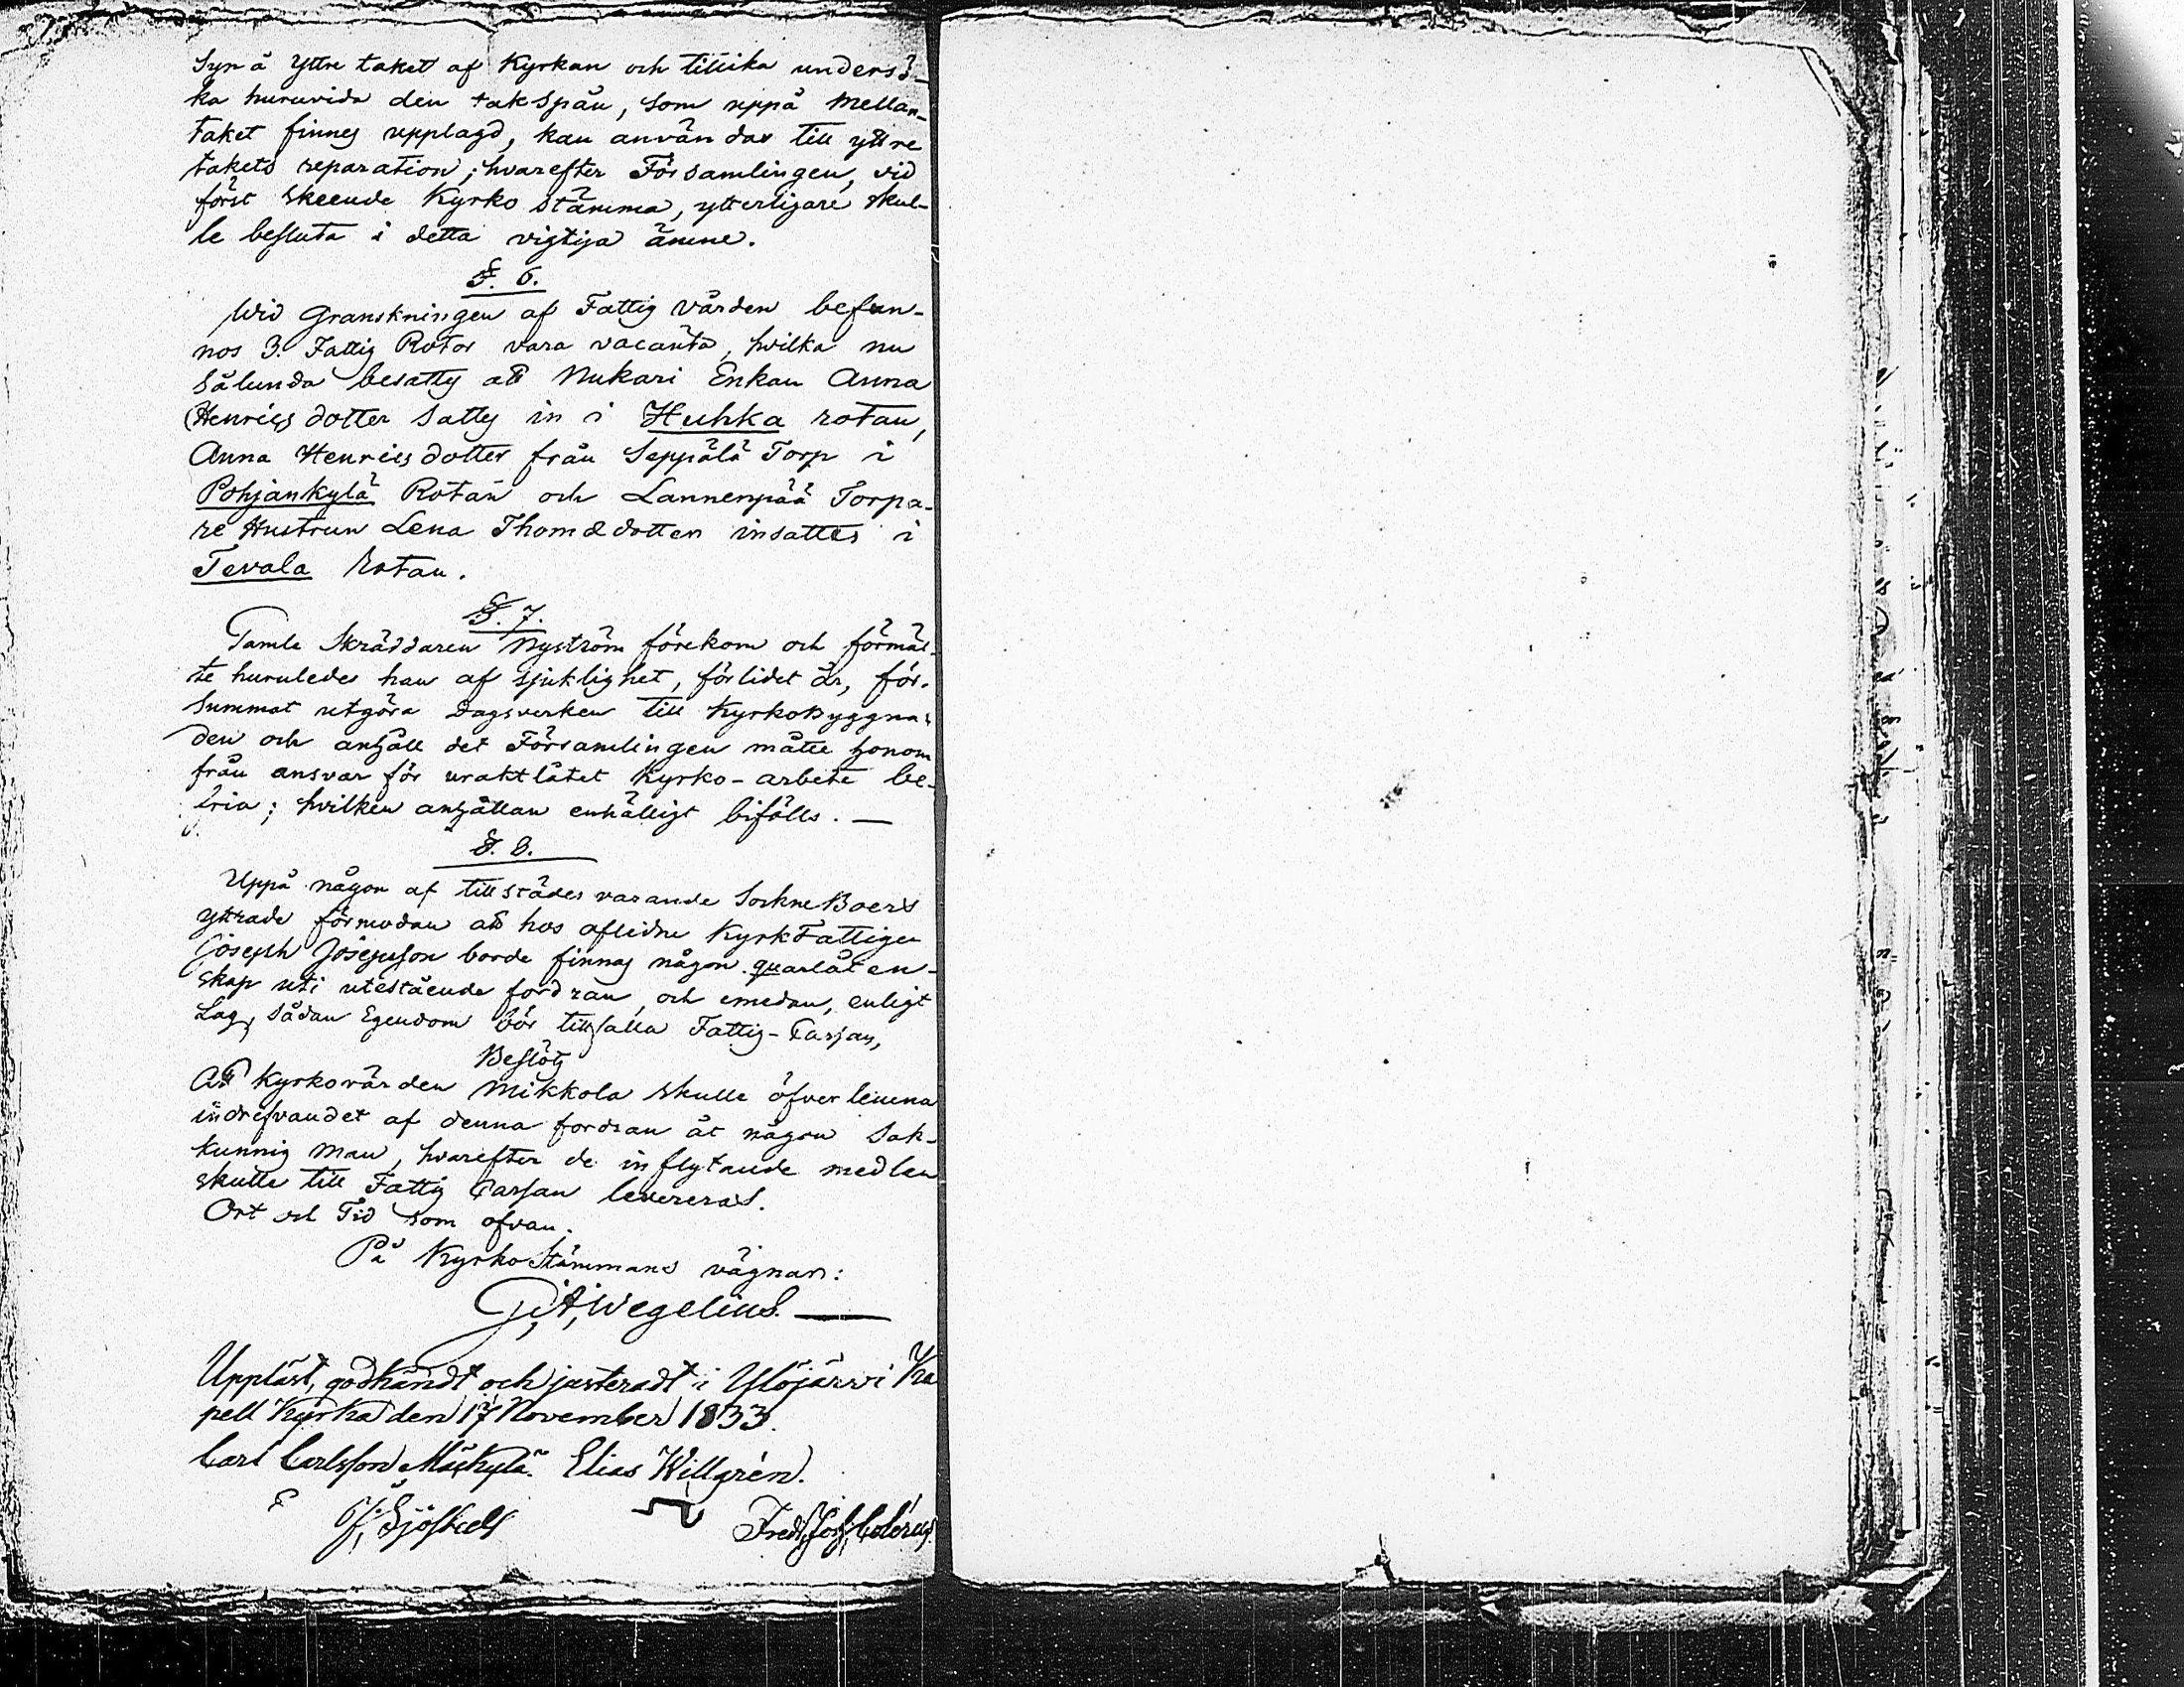 Syn å yttre taket af Kyrkan och tillika undersö-
ka huruvida den takspån, som uppå Mellan-
taket finnes upplagd, kan användas till yttre
takets reparation; hvarefter Församlingen, vid
först skeende Kyrko Stämma, ytterligare skul-
le besluta i detta vigtiga ämne.
§. 6.
Wid Granskningen af Fattig Vården befun-
nos 3. Fattig Rotor vara vacanta, hvilka nu
sålunda besattes att Nukari Enkan Anna
Henricsdotter sattes in i Huhka rotan,
Anna Henricsdotter från Seppälä Torp i
Pohjankylä Rotan och Lannenpää Torpa-
re Hustrun Lena Thomædotter insattes i
Tevala Rotan.
§. 7.
Gamla Skräddaren Nyström förekom och förmäl-
te huruledes han af sjuklighet, förlidet år, för-
summat utgöra Dagsverken till KyrkoByggna-
den och anhåll det Församlingen måtte honom
från ansvar för uraktlåtet Kyrko-arbete be-
fria; hvilken anhållan enhälligt bifölls. —
§. 8.
Uppå någon af tillstädes varande SockneBoers
yttrade förmodan att hos aflidne KyrkFattigen
Joseph Josepsson borde finnas någon quarlåten-
skap uti utestående fordran, och emedan, enligt
Lag, sådan Egendom bör tillfalla Fattig-Cassan,
Beslöts
Att Kyrkovärden Mikkola skulle öfverlemna
indrefvandet af denna fordran åt någon Sak-
kunnig Man, hvarefter de inflytande medlen
skulle till Fattig Cassan levereras.
Ort och Tid som ofvan.
På KyrkoStämmans vägnar:
G, A, Wegelius. —
Uppläst, godkändt och justeradt i Ylöjärvi Ka
pell Kyrka den 17 November 1833.
Carl Carlsson Mäkkylä. Elias Willgrén.